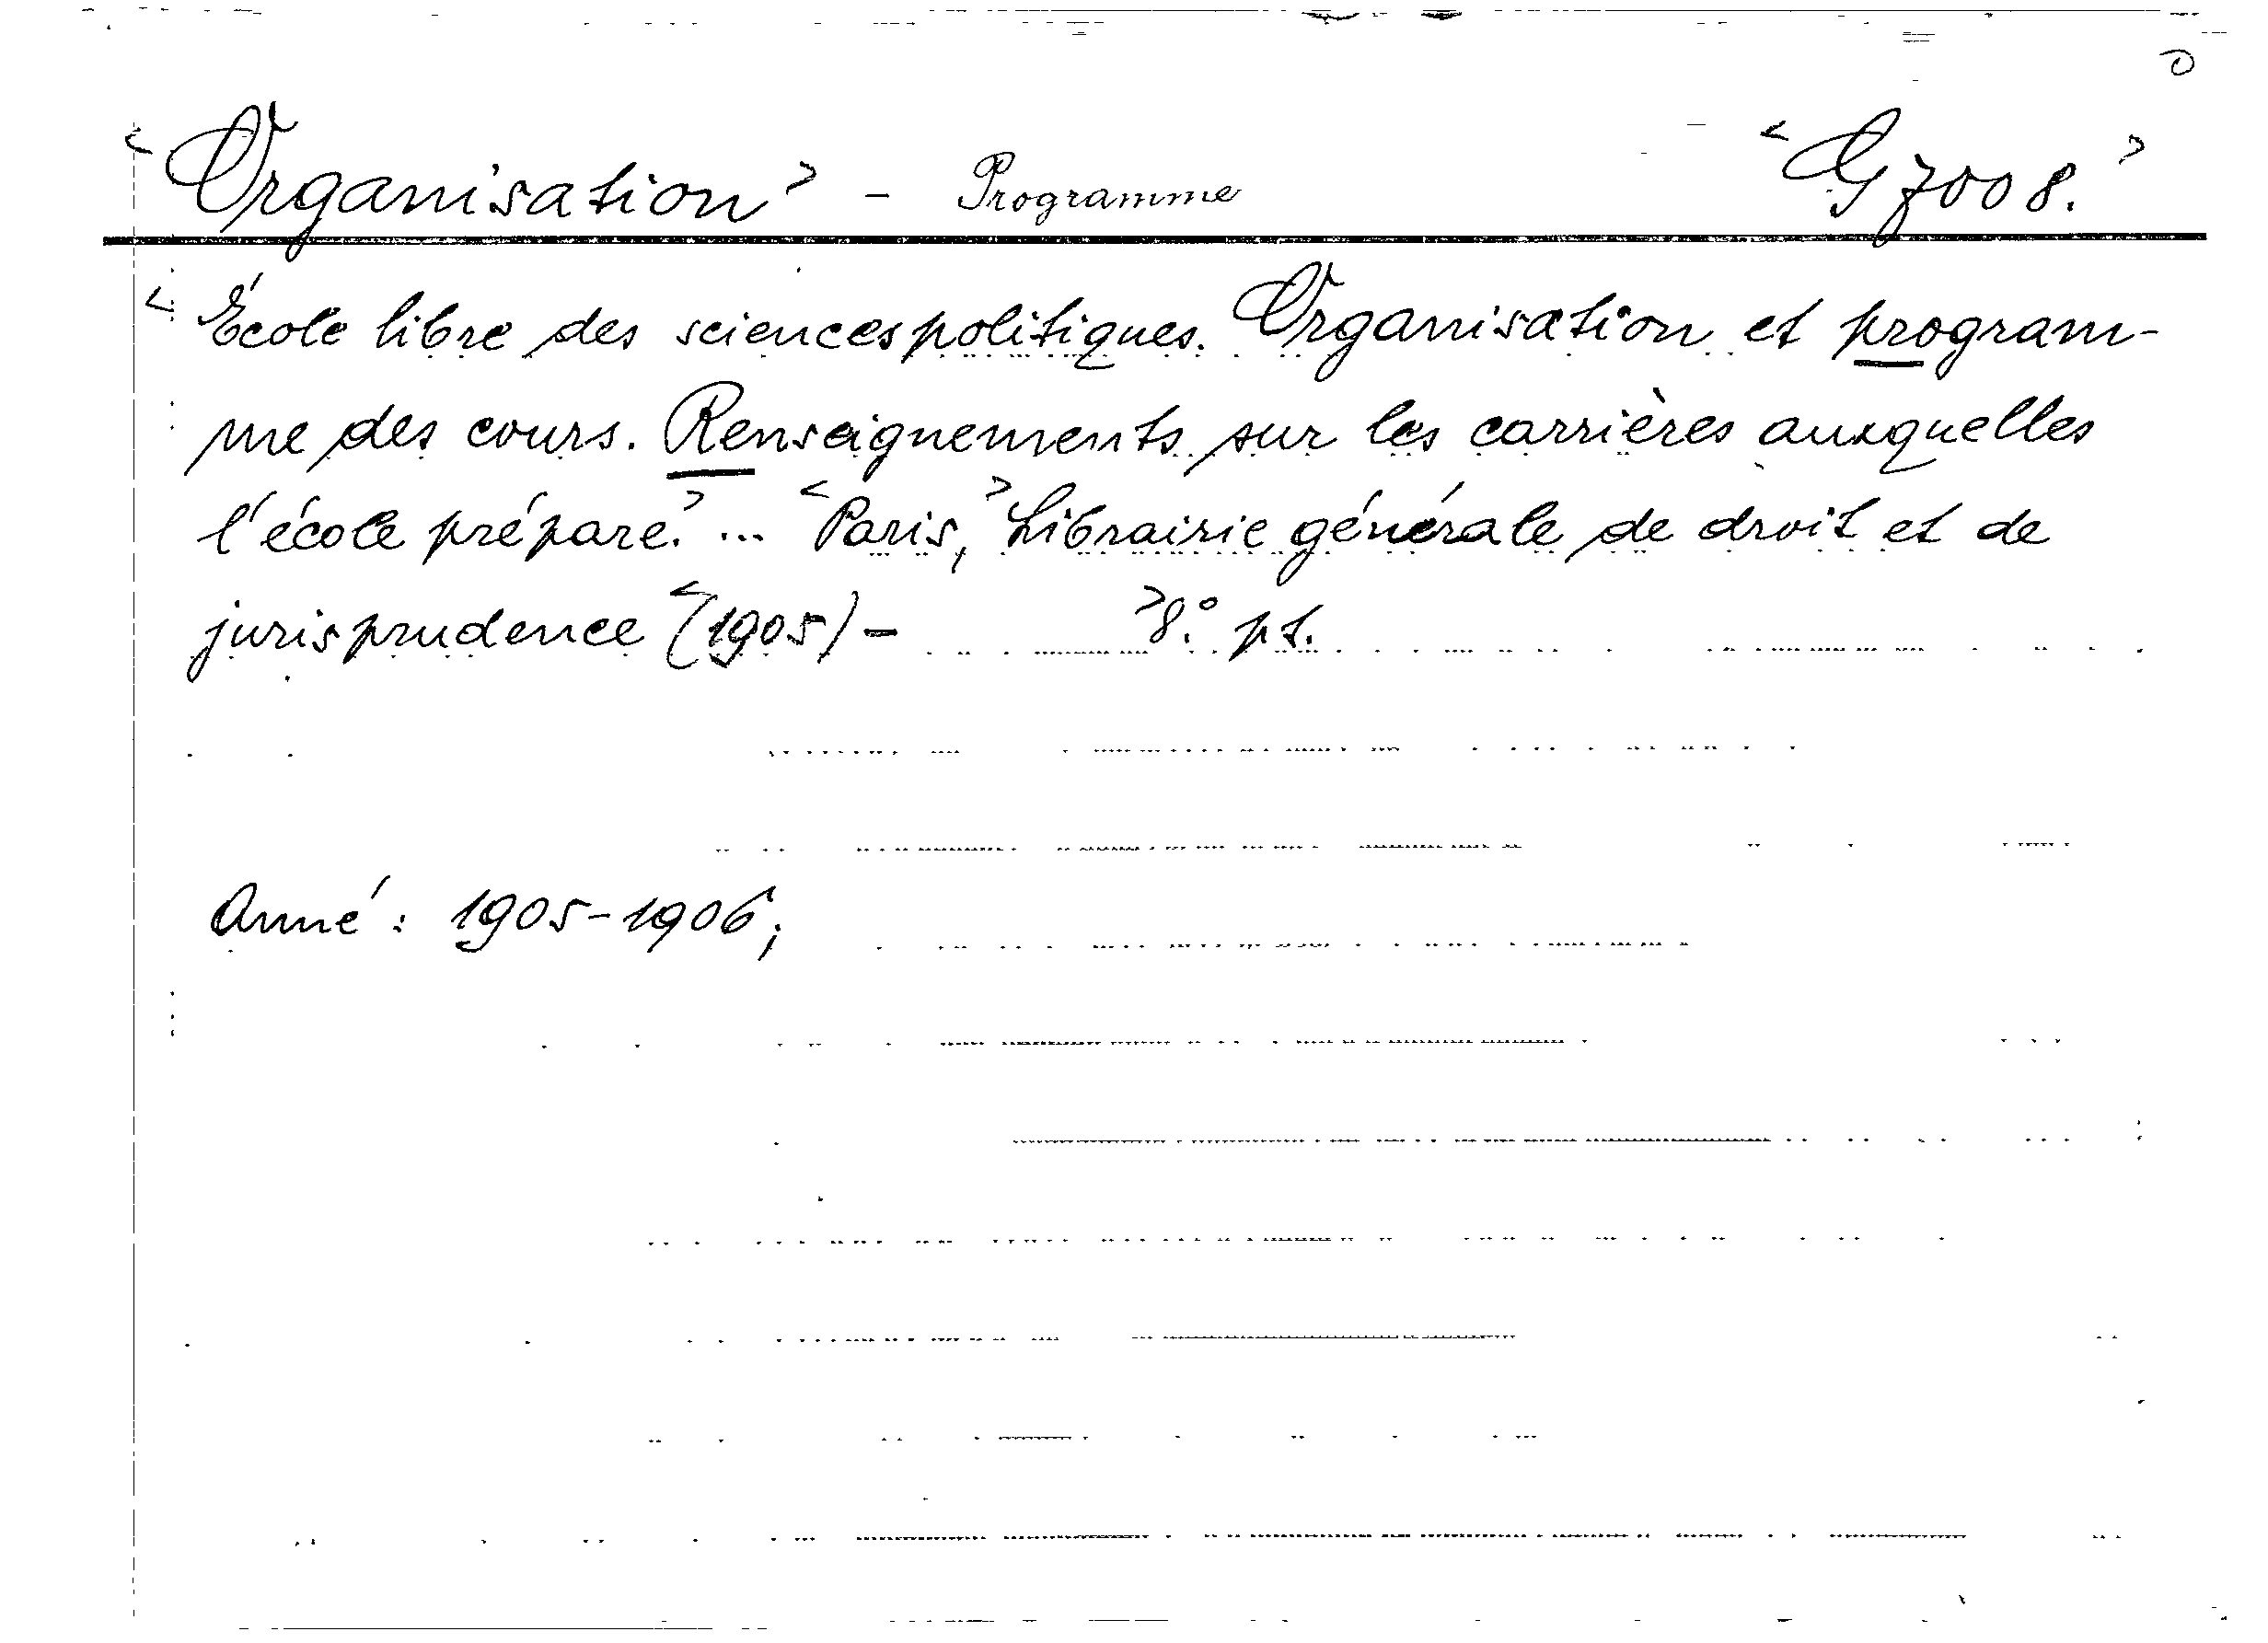 <Organisation> - Programme <G 7008.>
<École libre des sciences politiques. Organisation et program-
me des cours. Renseignements sur les carrières auxquelles
l'école prépare.> ... <Paris,> Librairie générale de droit et de
jurisprudence <(1905)- >8.° pt.
Anné: 1905-1906;